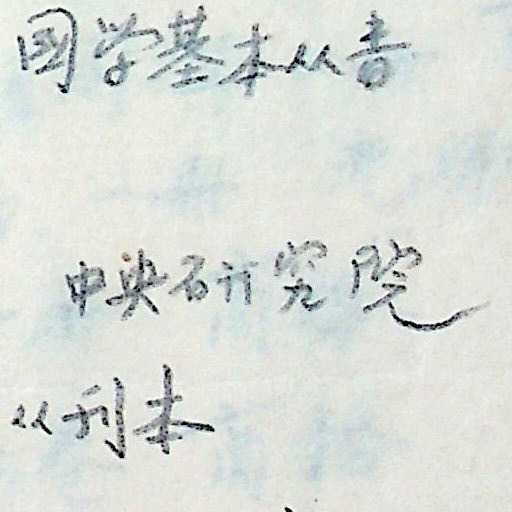 国学基本丛书
中央研究院
丛刊本